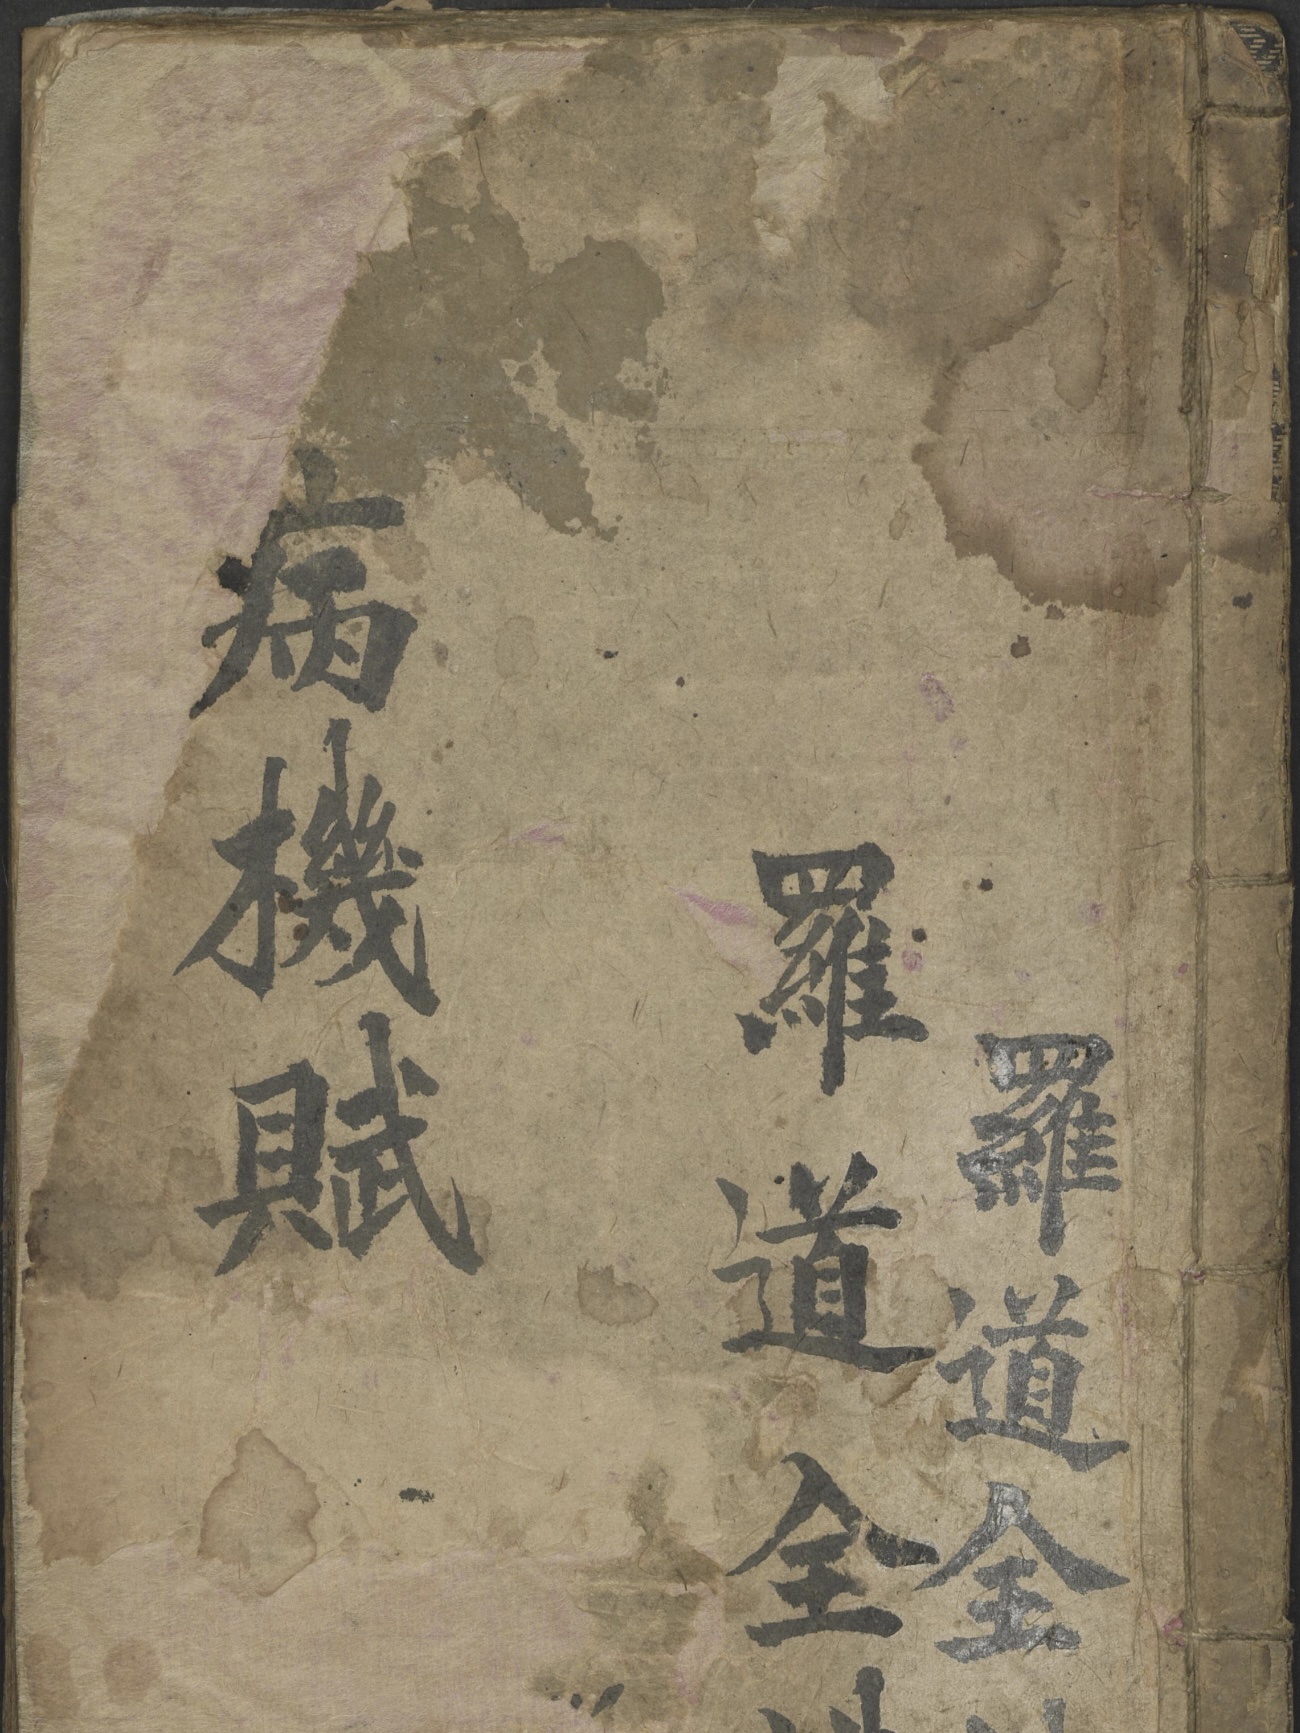 羅道全
羅道全
病機賦